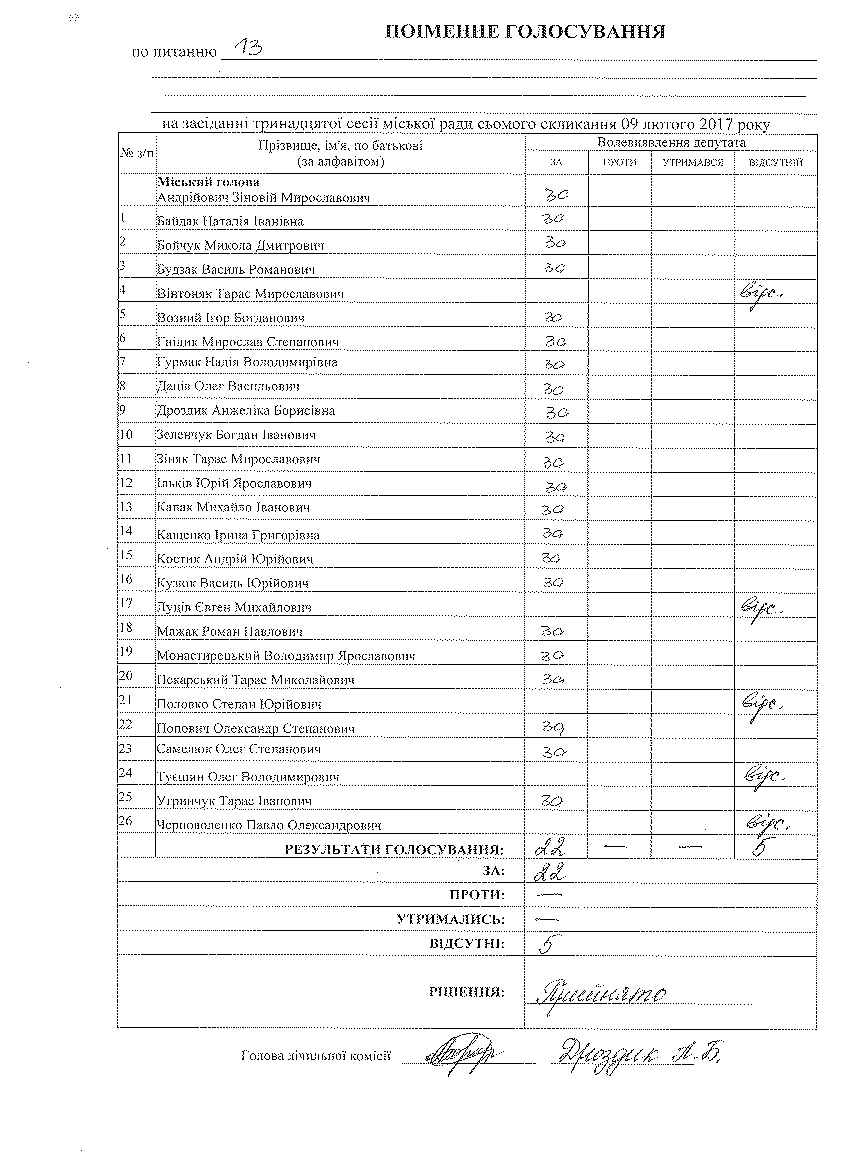 ПОІМЕННЕ ГОЛОСУВАННЯ
по питанню 13
на засіданні тринадцятої сесії міської ради сьомого скликання 09 лютого 2017 року
№ з/п Прізвище, ім'я, по батькові (за алфавітом) Волевиявлення депутата
ЗА ПРОТИ УТРИМАВСЯ ВІДСУТНІЙ
Міський голова
Андрійович Зіновій Мирославович за
1 Байдак Наталія Іванівна за
2 Бойчук Микола Дмитрович за
3 Будзак Василь Романович за
4 Вінтоняк Тарас Мирославович відс.
5 Возний Ігор Богданович за
6 Гнідик Мирослав Степанович за
7 Гурмак Надія Володимирівна за
8 Даців Олег Васильович за
9 Дроздик Анжеліка Борисівна за
10 Зеленчук Богдан Іванович за
11 Зіняк Тарас Мирославович за
12 Ільків Юрій Ярославович за
13 Капак Михайло Іванович за
14 Кащенко Ірина Григорівна за
15 Костик Андрій Юрійович за
16 Кузюк Василь Юрійович за
17 Луців Євген Михайлович відс.
18 Мажак Роман Павлович за
19 Монастирецький Володимир Ярославович за
20 Пекарський Тарас Миколайович за
21 Половко Степан Юрійович відс.
22 Попович Олександр Степанович за
23 Самелюк Олег Степанович за
24 Туєшин Олег Володимирович відс.
25 Угринчук Тарас Іванович за
26 Черноволенко Павло Олександрович відс.
РЕЗУЛЬТАТИ ГОЛОСУВАННЯ: 22 — — 5
ЗА: 22
ПРОТИ: —
УТРИМАЛИСЬ: —
ВІДСУТНІ: 5
РІШЕННЯ: Прийнято
Голова лічильної комісії Дроздик А.Б.